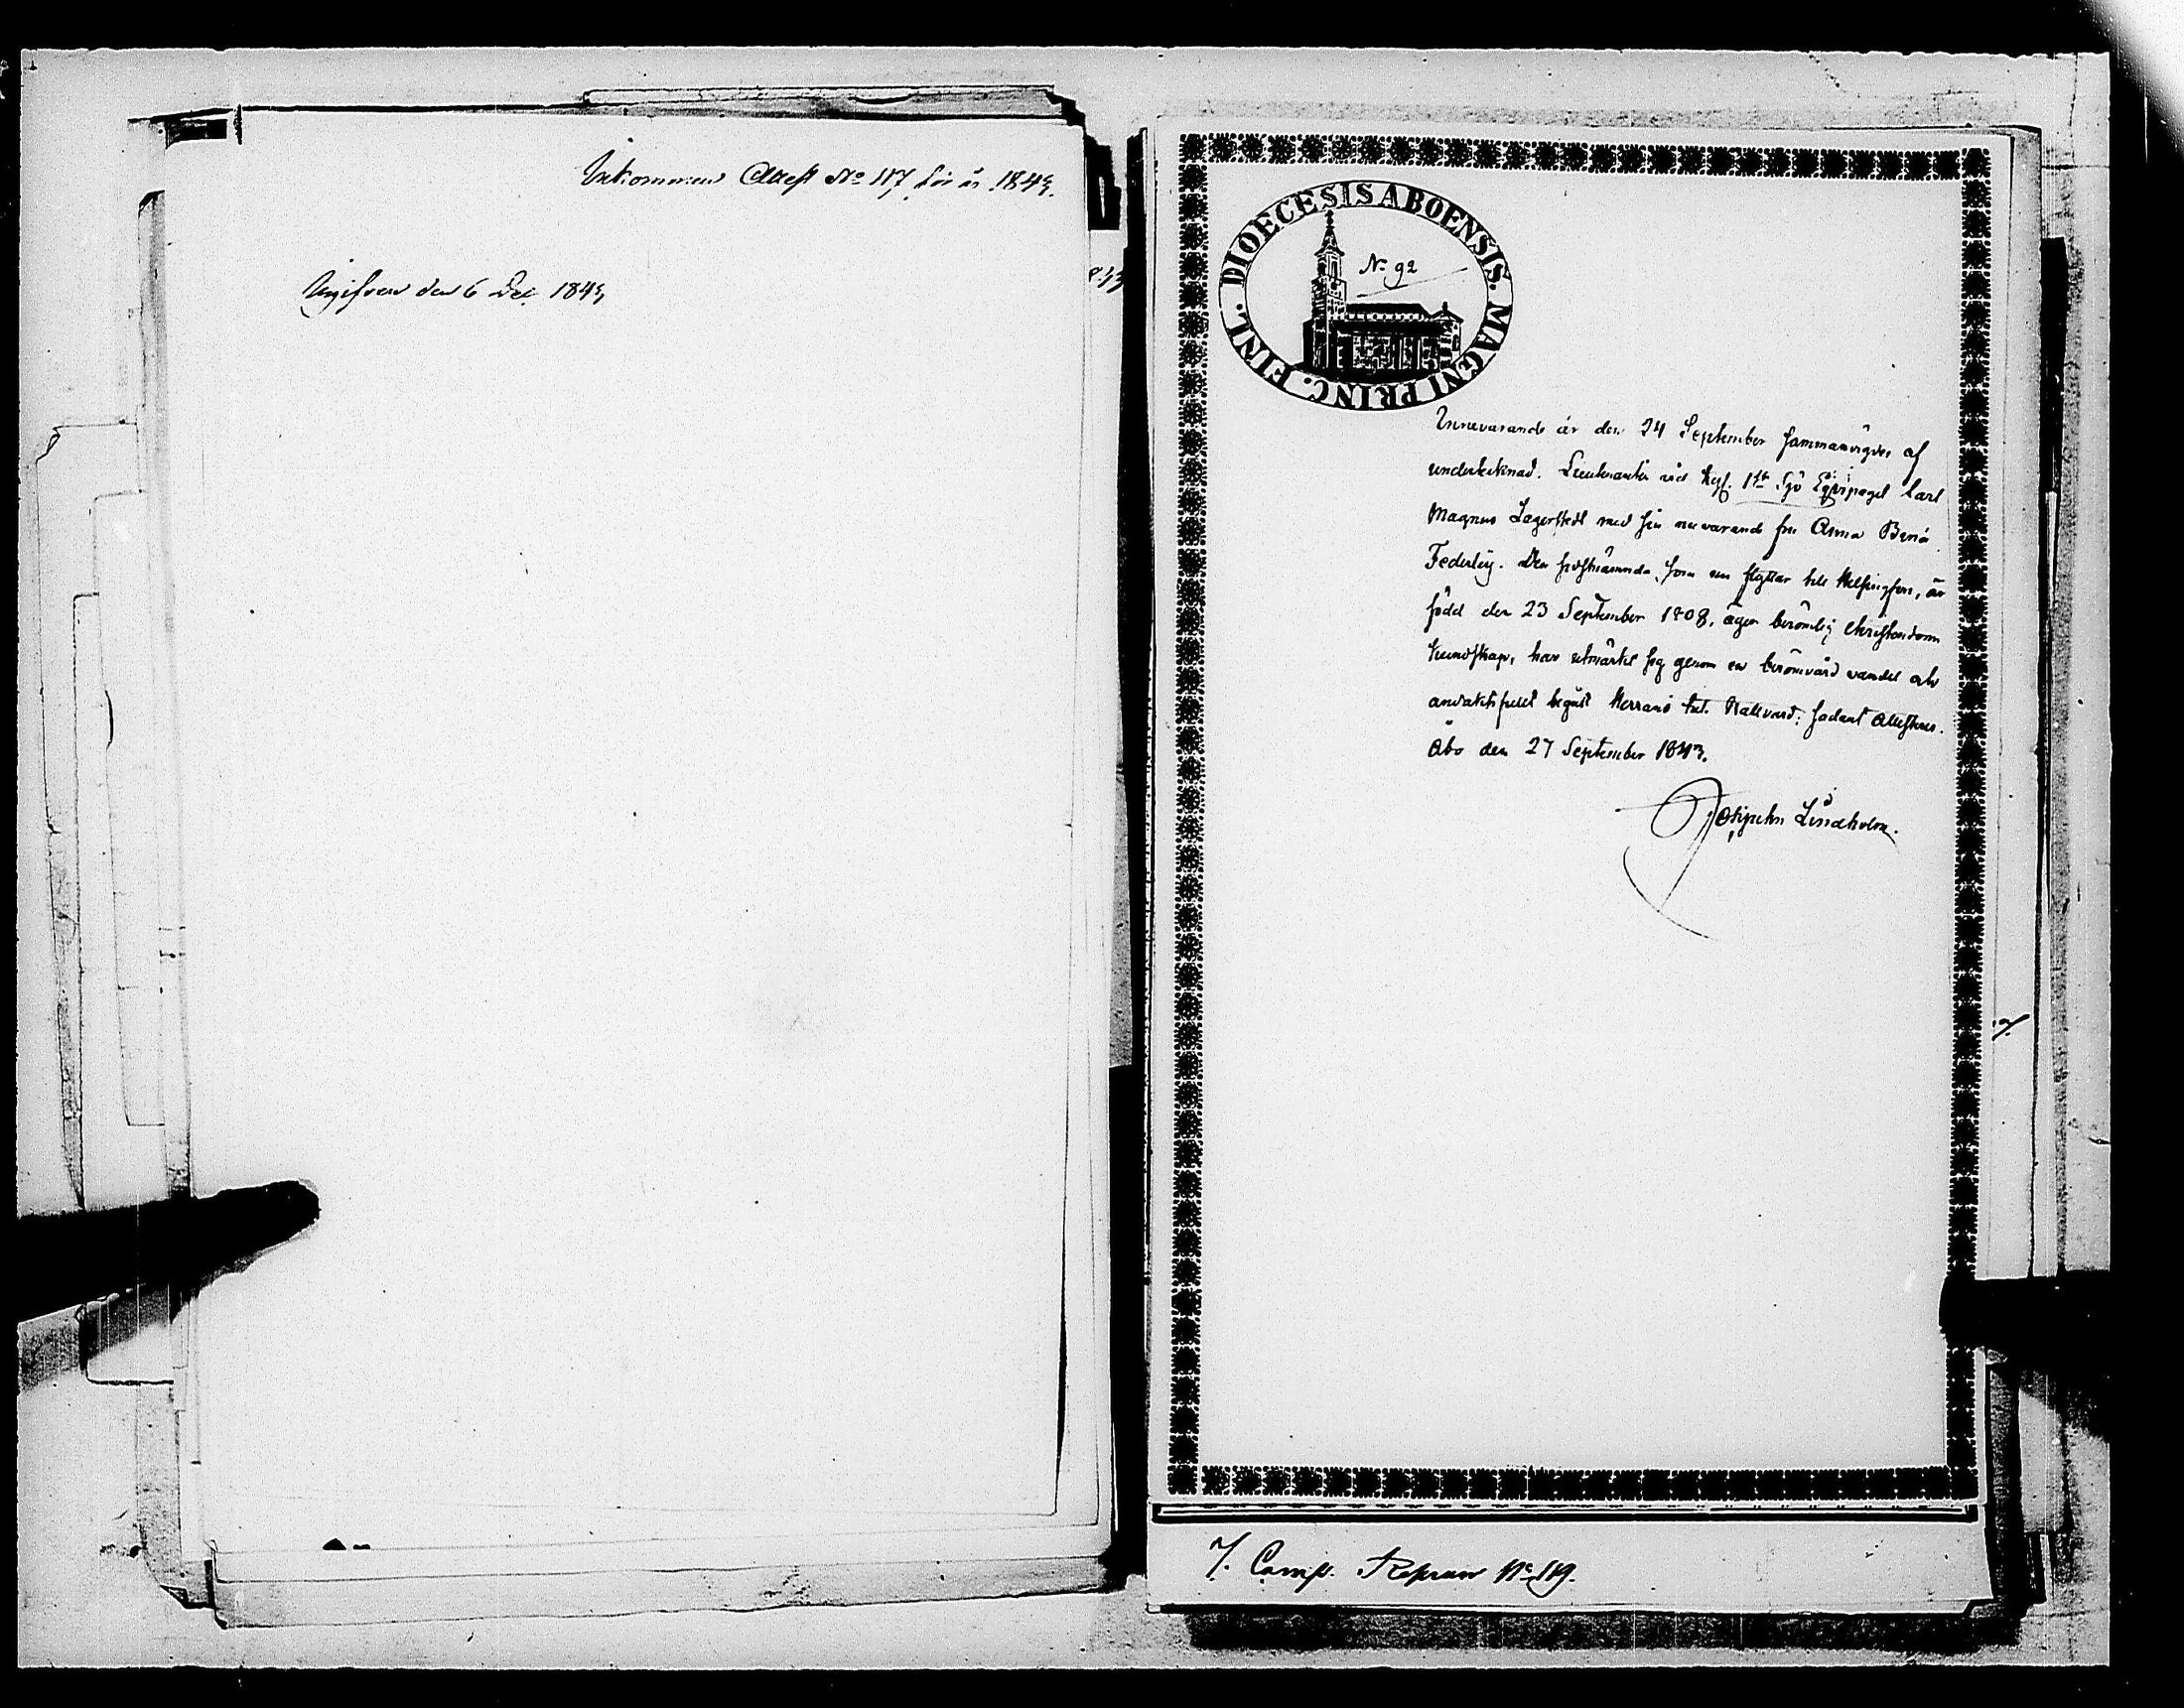 Inkommen Attest No 117 för år 1843.
Uppgifven den 6 Dec 1843
DIOECESIS ABOENSIS. MAGNI PRINC. FINL.
No 92
Innevarande år den 24 September sammanvigdes af
undertecknad. Lieutenanten vid Kejs. 1sta Sjö Eqvipaget Carl
Magnus Lagerstedt med sin nuvarande fru Anna
Federley. Den sistnämnda, som nu flyttar till Helsingfors, är
född den 23 September 1808, äger berömlig christendoms
kundskap, har utmärkt sig genom en berömvärd vandel och
andaktsfullt begått Herrans Nattvard; sådant attesteras.
Åbo den 27 September 1843.
Lindholm.
7. Comp. No 119.